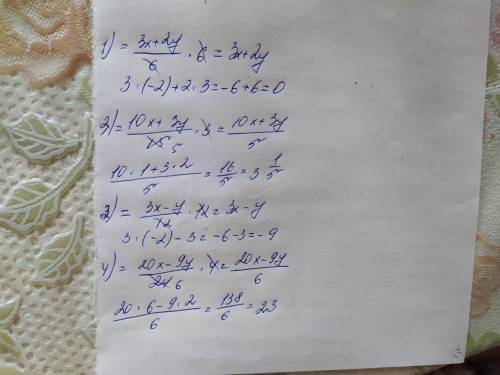 1) = 3x+2y/6 · 6 = 3x+2y
3·(-2)+2·3=-6+6=0
3) = 10x+3y/15 5 · 3 = 10x+3y/5
10·1+3·2/5 = 16/5 = 3 1/5
2) = 3x-y/12 · 12 = 3x-y
3·(-2)-3=-6-3=-9
4) = 20x-9y/24 6 · 4 = 20x-9y/6
20·6-9·2/6 = 138/6 = 23